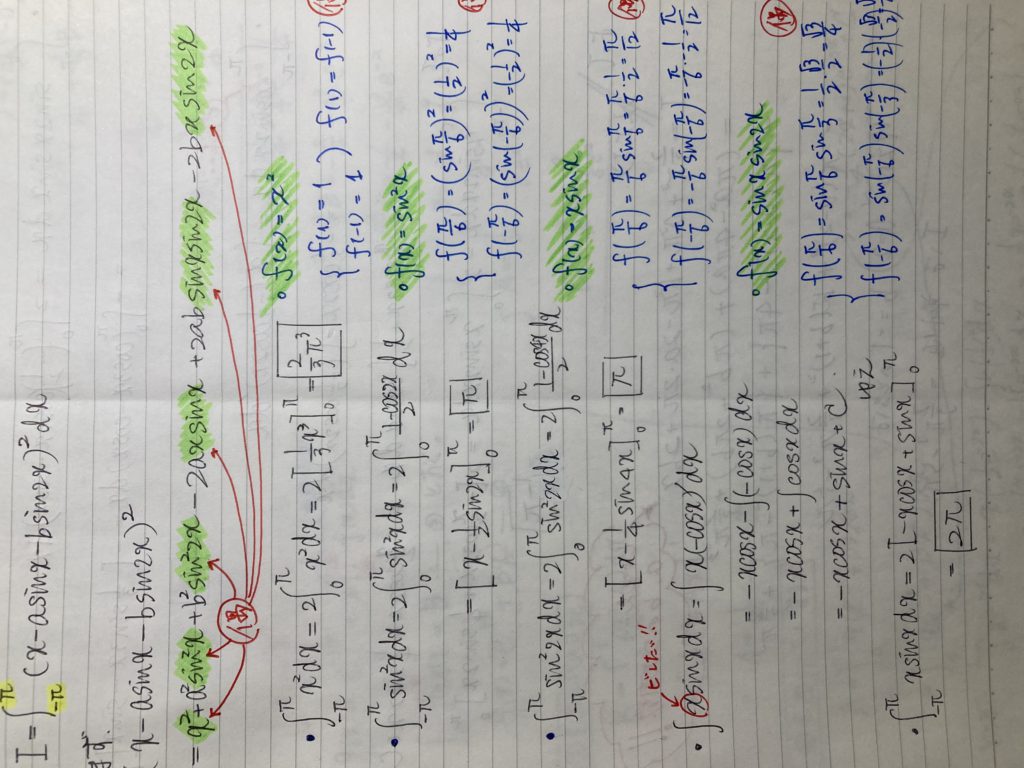 I = ∫_{-π}^{π} (x - a sinx - b sin2x)² dx
まず.
(x - a sinx - b sin2x)²
= x² + a² sin²x + b² sin²2x - 2ax sinx + 2ab sinx sin2x - 2bx sin2x
偶
• ∫_{-π}^{π} x² dx = 2∫_{0}^{π} x² dx = 2[1/3 x³]_{0}^{π} = 2/3 π³
• ∫_{-π}^{π} sin²x dx = 2∫_{0}^{π} sin²x dx = 2∫_{0}^{π} (1-cos2x)/2 dx
= [x - 1/2 sin2x]_{0}^{π} = π
• ∫_{-π}^{π} sin²2x dx = 2∫_{0}^{π} sin²2x dx = 2∫_{0}^{π} (1-cos4x)/2 dx
= [x - 1/4 sin4x]_{0}^{π} = π
ビしたい!!
• ∫ x sinx dx = ∫ x(-cosx)' dx
= -x cosx - ∫(-cosx) dx
= -x cosx + ∫ cosx dx
= -x cosx + sinx + C
• ∫_{-π}^{π} x sinx dx = 2[-x cosx + sinx]_{0}^{π}
= 2π
• f(x) = x²
{ f(1) = 1
f(-1) = 1 ) f(1) = f(-1)
偶
• f(x) = sin²x
{ f(π/6) = (sin π/6)² = (1/2)² = 1/4
f(-π/6) = (sin(-π/6))² = (-1/2)² = 1/4
偶
• f(x) = x sinx
{ f(π/6) = π/6 sin π/6 = π/6 · 1/2 = π/12
f(-π/6) = -π/6 sin(-π/6) = -π/6 · -1/2 = π/12
偶
• f(x) = sinx sin2x
{ f(π/6) = sin π/6 sin π/3 = 1/2 · √3/2 = √3/4
f(-π/6) = sin(-π/6) sin(-π/3) = (-1/2)(